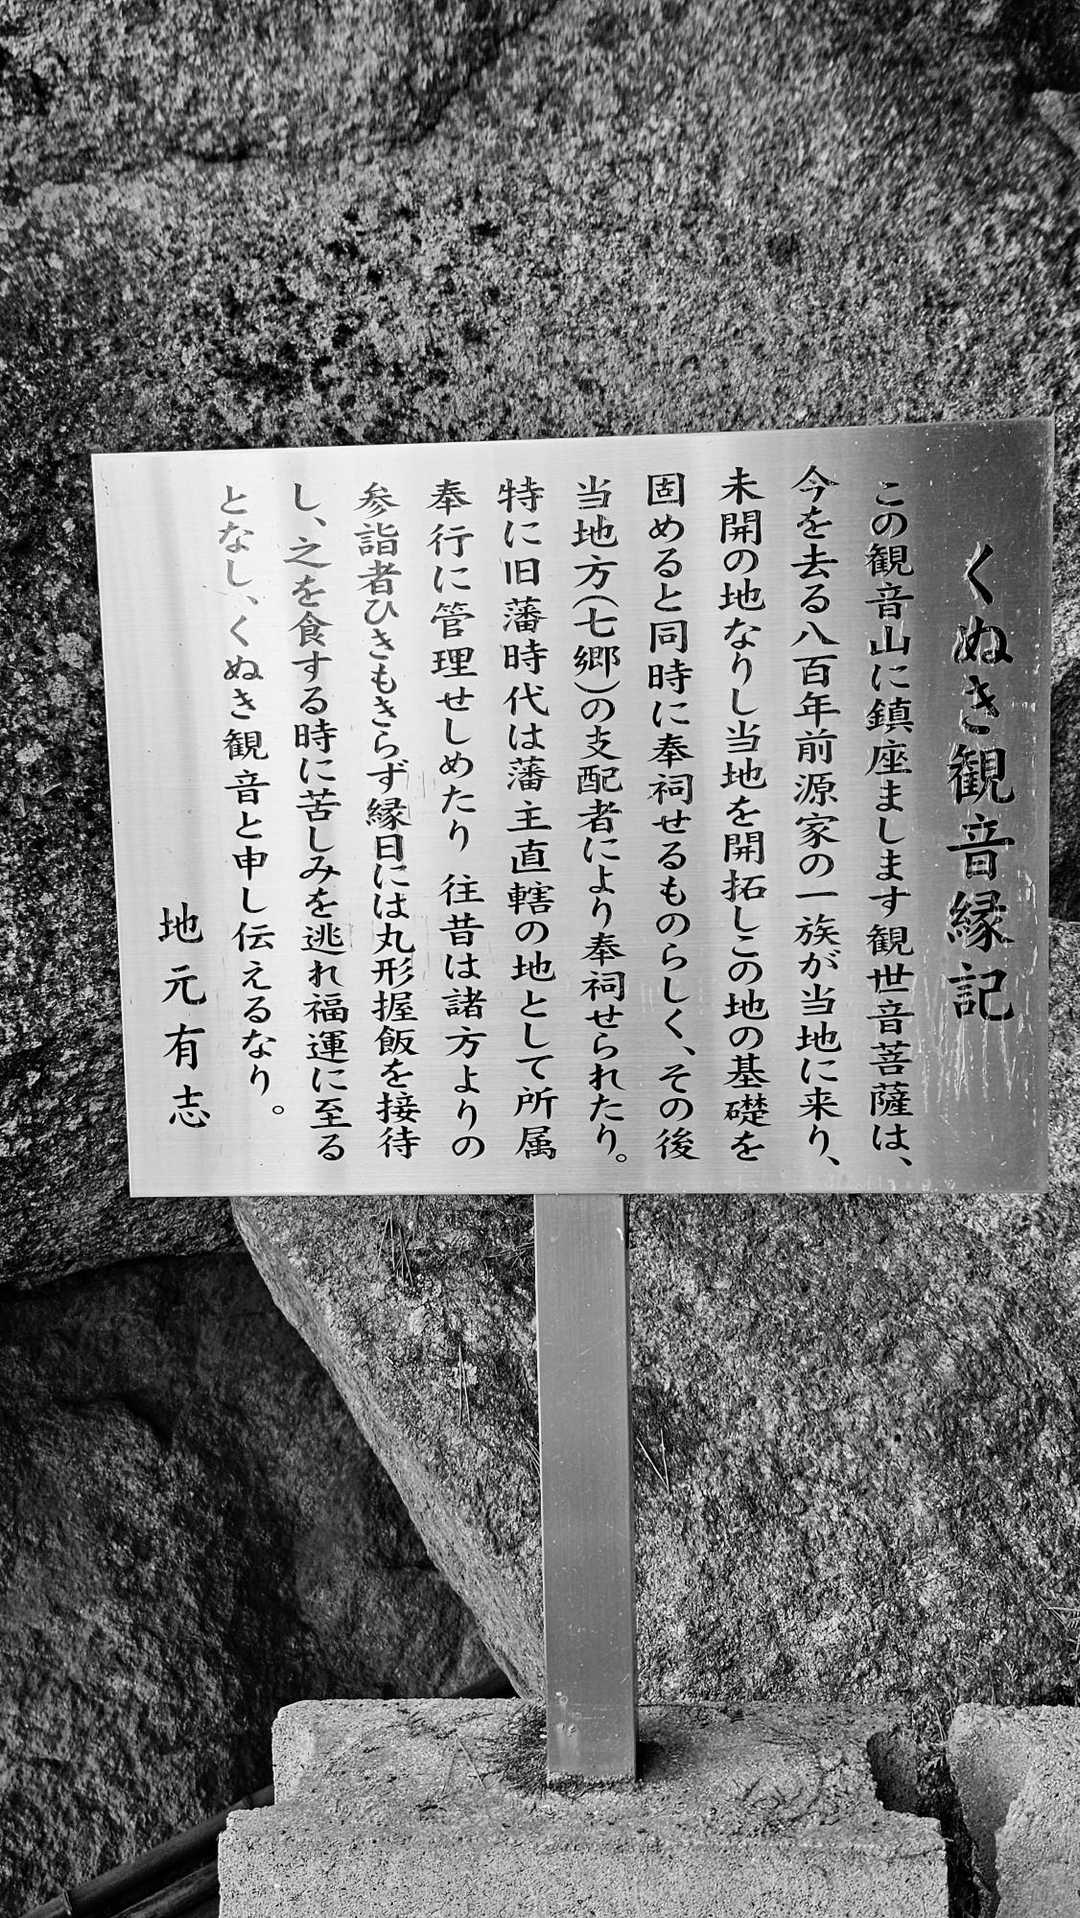 くぬき観音縁記
この観音山に鎮座まします観世音菩薩は、
今を去る八百年前源家の一族が当地に来り、
未開の地なりし当地を開拓しこの地の基礎を
固めると同時に奉祠せるものらしく、その後
当地方(七郷)の支配者により奉祠せられたり。
特に旧藩時代は藩主直轄の地として所属
奉行に管理せしめたり 往昔は諸方よりの
参詣者ひきもきらず縁日には丸形握飯を接待
し、之を食する時に苦しみを逃れ福運に至る
となし、くぬき観音と申し伝えるなり。
地元有志